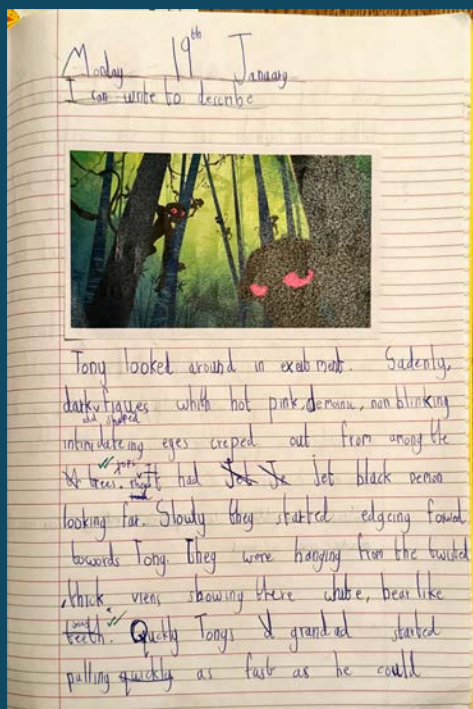 Monday 19th January
I can write to describe
Tony looket around in exeitment. Sadenly,
dark figues which hot pink, demonic, non blinking
odd shaped
intimidateing eyes creped out from among the
trees. had jet black demon
looking far. Slowly they started edgeing foward
towards Tony. They were hanging from the twisted
, thick viens showing there white, bear like
teeth. Quckly Tonys grandad started
pulling quickly as fast as he could